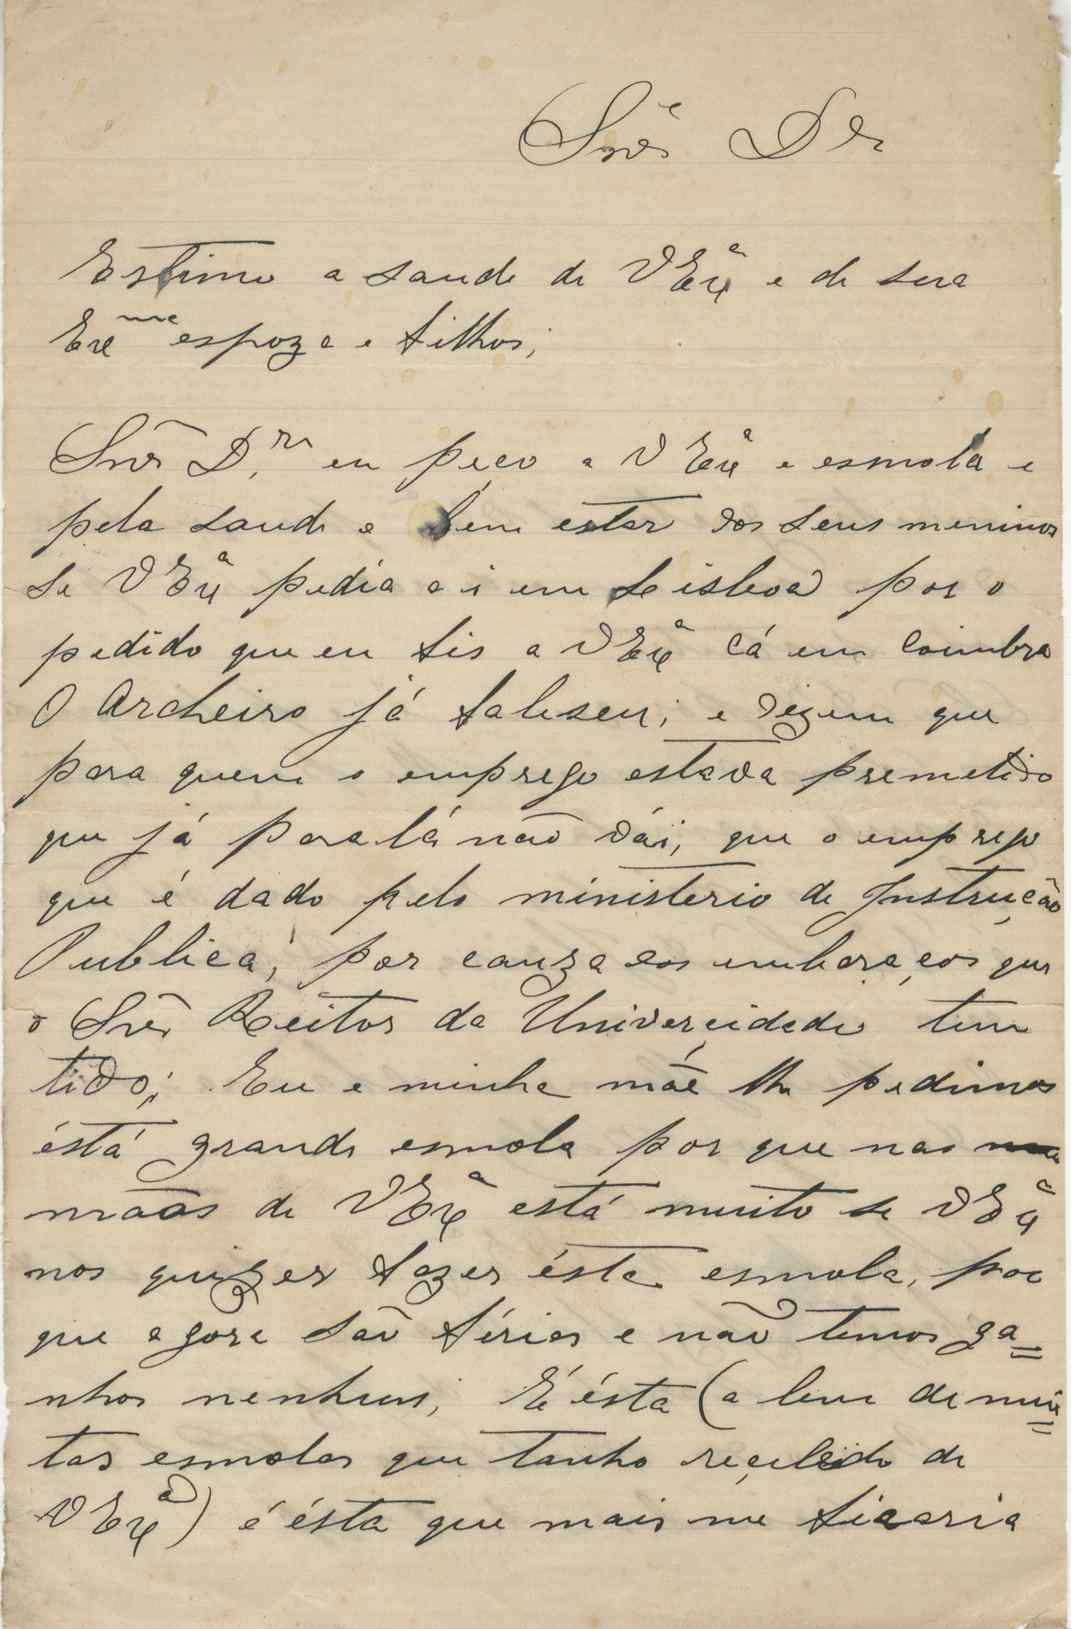 Snr̃ Dr
Estimo a saude de VExª e de sua
Exmᵃ espoza e filhos;
Snr̃ D.ʳ eu peço a VExª e esmola e
pela saude e bem estar dos seus meninos
se VExª pedia a i em Lisboa por o
pedido que eu fis a VExª cá em Coimbra
O Archeiro já faleseu; e dizem que
para quem o emprego estava premetido
que já para lá não vái, que o emprego
que é dado pelo ministerio de Instrução
Publica, por cauza dos embaraços que
o Snr̃ Reitor da Univercidade tem
tido; Eu e minha mãe lhe pedimos
ésta grande esmola por que nas
mãos de VExª está muito se VExª
nos quizer fazer ésta esmola, por
que agora são férias e não temos ga=
nhos nenhuns; É ésta (a lem de mui=
tas esmolas que tanho reçebido de
VExª) é ésta que mais me ficaria